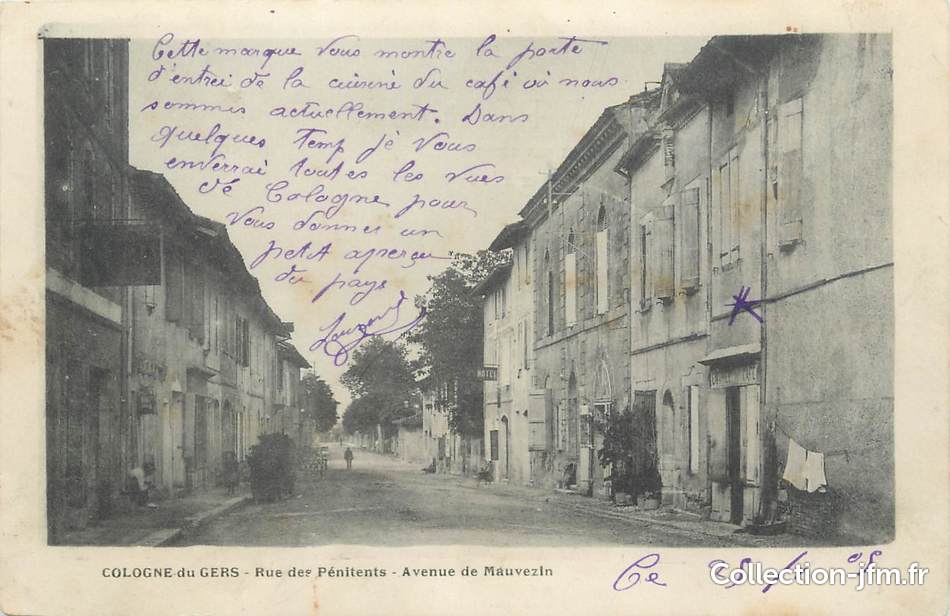 Cette marque vous montre la porte
d'entrei de la cuisine du café où nous
sommes actuellement. Dans
quelques temp je vous
enverrai toutes les vues
de Cologne pour
vous donner un
petit aperçu
du pays
HOTEL
COLOGNE du GERS - Rue des Pénitents - Avenue de Mauvezin
Ce
Collection-jfm.fr